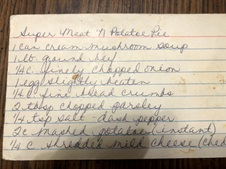 Super Meat N Potatoe Pie
1 can cream mushroom soup
1 lb ground beef
1/4 C finely chopped onion
1 egg slightly beaten
1/4 C fine bread crumbs
2 tbsp chopped parsley
1/4 tsp salt - dash pepper
2 C mashed potatoes (instant)
1/4 C shredded mild cheese (Ched